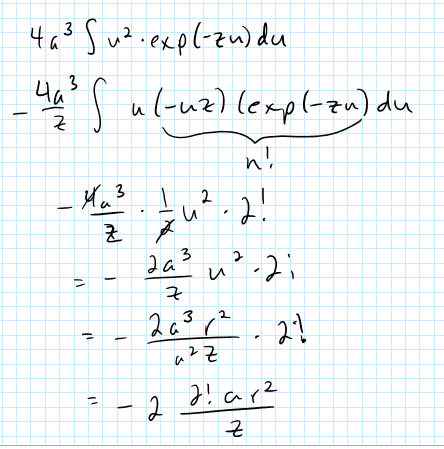 4a³ ∫ u² · exp(-zu) du
- 4a³/z ∫ u (-uz) (exp(-zu) du
n!
- 4a³/z · 1/2 u² · 2!
= - 2a³/z u² · 2!
= - 2a³r²/a²z · 2!
= - 2 2! ar²/z